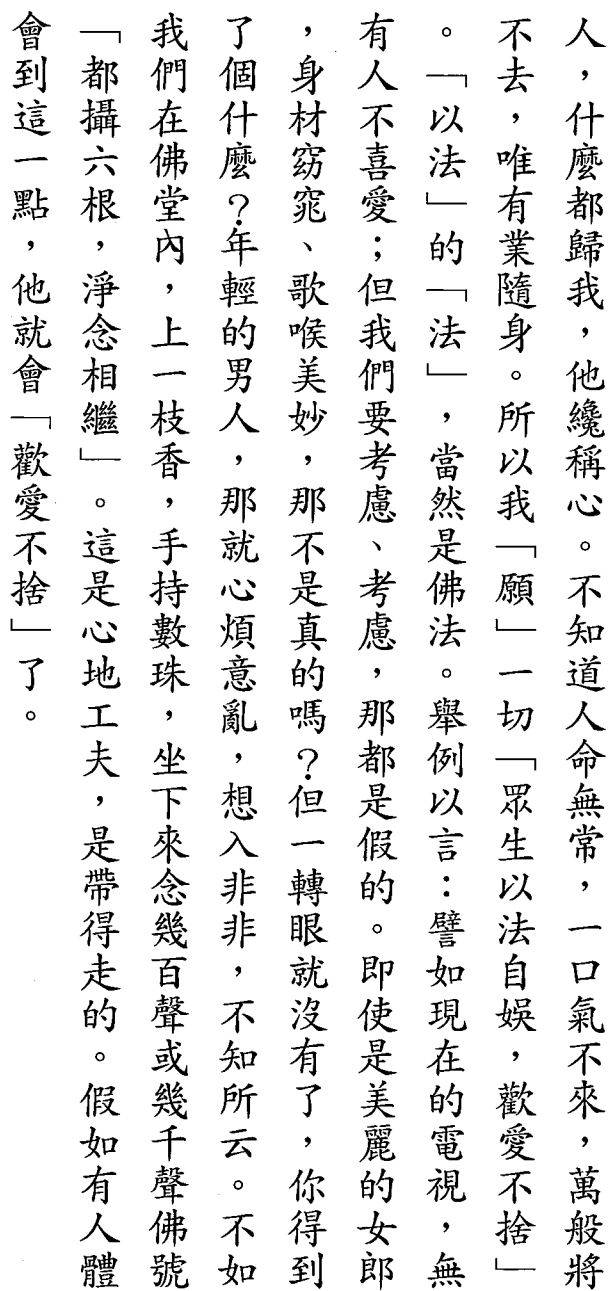 人，什麼都歸我，他纔稱心。不知道人命無常，一口氣不來，萬般將
不去，唯有業隨身。所以我「願」一切「眾生以法自娛，歡愛不捨」
。「以法」的「法」，當然是佛法。舉例以言：譬如現在的電視，無
有人不喜愛；但我們要考慮、考慮，那都是假的。即使是美麗的女郎
，身材窈窕、歌喉美妙，那不是真的嗎？但一轉眼就沒有了，你得到
了個什麼？年輕的男人，那就心煩意亂，想入非非，不知所云。不如
我們在佛堂內，上一枝香，手持數珠，坐下來念幾百聲或幾千聲佛號
「都攝六根，淨念相繼」。這是心地工夫，是帶得走的。假如有人體
會到這一點，他就會「歡愛不捨」了。